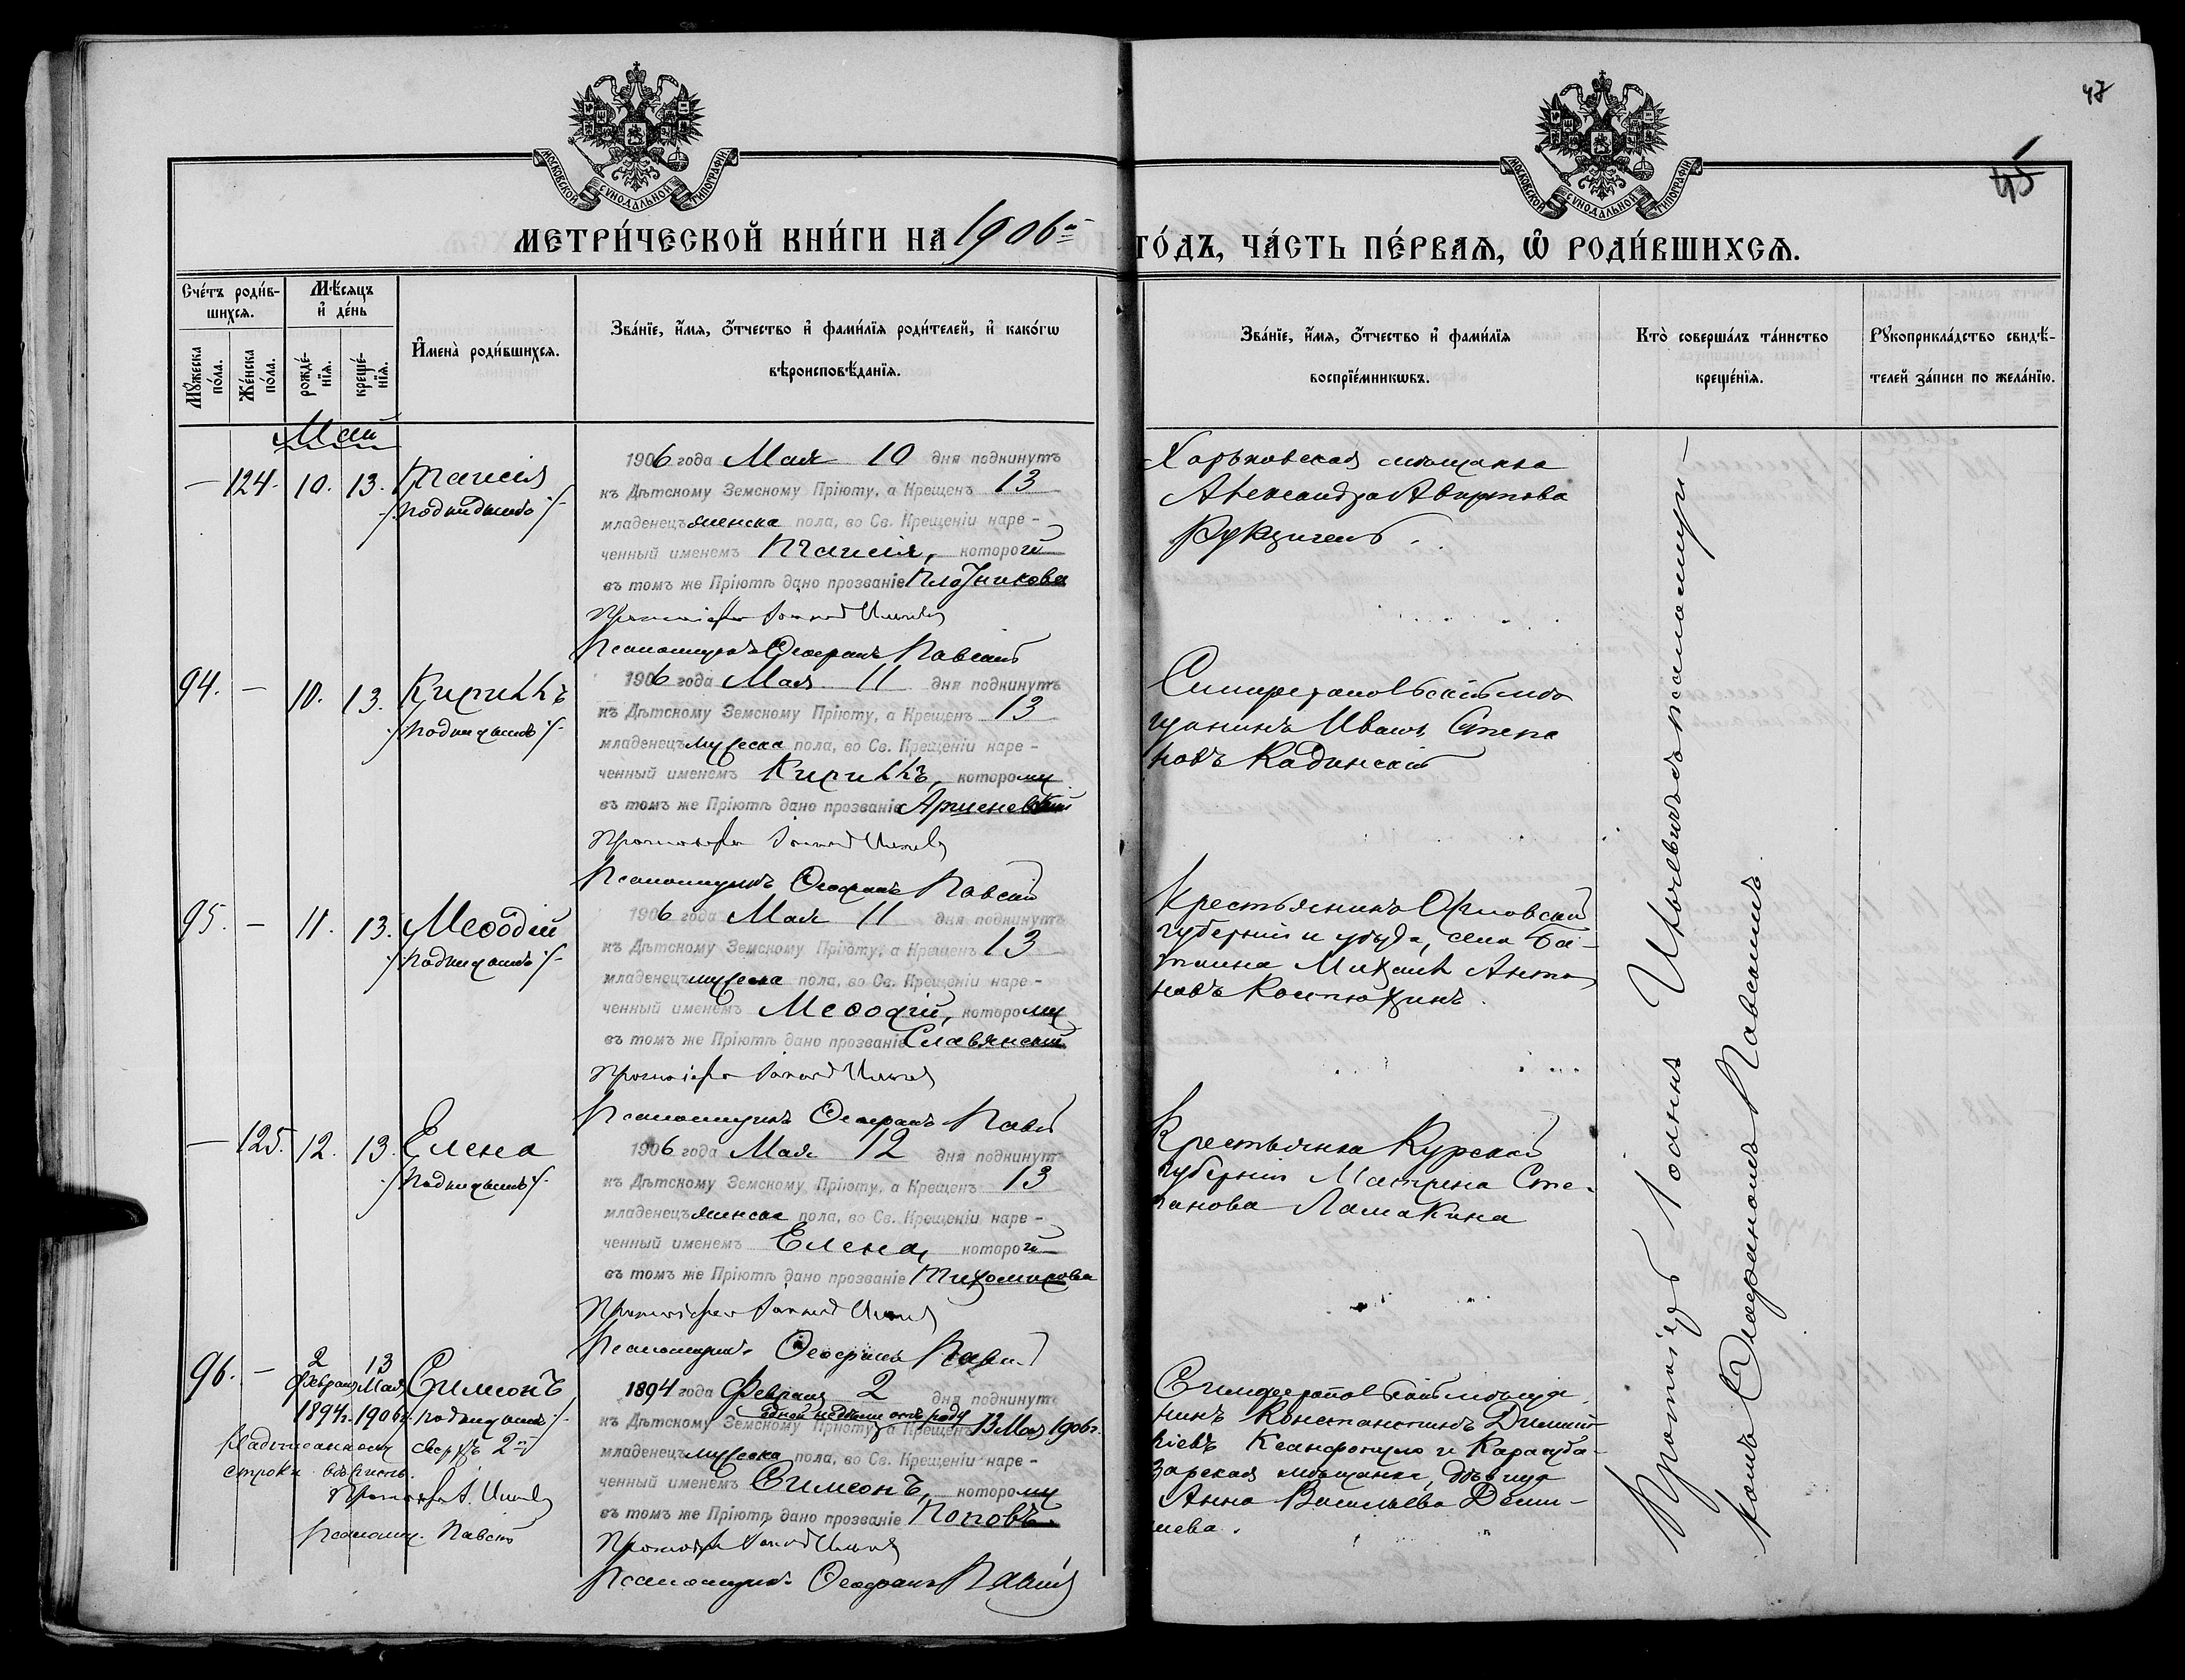 47
45
МОСКОВСКОЙ СѴНОДАЛЬНОЙ ТИПОГРАФІИ
МОСКОВСКОЙ СѴНОДАЛЬНОЙ ТИПОГРАФІИ
МЕТРИ́ЧЕСКОЙ КНИ́ГИ НА 1906й ГО́ДЪ, ЧА́СТЬ ПЕ́РВАѦ, Ѽ РОДИ́ВШИХСѦ.
Сче́тъ роди́в-
шихсѧ.
Мꙋ́жеска по́ла.
Же́нска по́ла.
Мѣ́сяцъ и де́нь
рожде́-нїѧ.
креще́-нїѧ.
И҆мена̀ роди́вшихсѧ.
Зва́нїе, и҆́мѧ, ѻ҆́тчество и҆ фами́лїѧ роди́телей, и҆ како́гѡ
вѣроисповѣ́данїѧ.
Зва́нїе, и҆́мѧ, ѻ҆́тчество и҆ фами́лїѧ
воспрїе́мникѡвъ.
Кто̀ соверша́лъ та́инство
креще́нїѧ.
Рꙋкоприкла́дство свидѣ́-
телей за́писи по жела́нїю.
Май
— 124. 10. 13. Таисія
/подкидышъ/
1906 года Мая 10 дня подкинутъ
къ Дѣтскому Земскому Пріюту, а Крещенъ 13
младенецъ женска пола, во Св. Крещеніи наре-
ченный именемъ Таисія, которой
въ томъ же Пріютѣ дано прозваніе Плотникова
Протоіерей Іоаннъ
Псаломщикъ Ѳеофанъ Павскій
Харьковская мѣщанка
Александра
94. — 10. 13. Кириллъ
/подкидышъ/
1906 года Мая 11 дня подкинутъ
къ Дѣтскому Земскому Пріюту, а Крещенъ 13
младенецъ мужеска пола, во Св. Крещеніи наре-
ченный именемъ Кириллъ, которому
въ томъ же Пріютѣ дано прозваніе
Протоіерей Іоаннъ
Псаломщикъ Ѳеофанъ Павскій
Симферопольскій мѣ
щанинъ Иванъ Степа
новъ Кадинскій
95. — 11. 13. Меѳодій
/подкидышъ/
1906 года Мая 11 дня подкинутъ
къ Дѣтскому Земскому Пріюту, а Крещенъ 13
младенецъ мужеска пола, во Св. Крещеніи наре-
ченный именемъ Меѳодій, которому
въ томъ же Пріютѣ дано прозваніе Славянскій
Протоіерей Іоаннъ
Псаломщикъ Ѳеофанъ Павскій
Крестьянинъ Орловской
губерніи и уѣзда, села
Михаилъ Анто
новъ
— 125. 12. 13. Елена
/подкидышъ/
1906 года Мая 12 дня подкинутъ
къ Дѣтскому Земскому Пріюту, а Крещенъ 13
младенецъ женска пола, во Св. Крещеніи наре-
ченный именемъ Елена, которой
въ томъ же Пріютѣ дано прозваніе Тихомирова
Протоіерей Іоаннъ
Псаломщикъ Ѳеофанъ Павскій
Крестьянка Курской
губерніи Матрена Сте-
панова Ламакина
96. — 2 Февраля 1894г. 13 Мая 1906г. Симеонъ
/подкидышъ/
Надписанному сверхъ 2ой
строки вѣрить.
Протоіерей І.
Псаломщ. Павскій
1894 года Февраля 2 дня подкинутъ
одной недѣли отъ роду
къ Дѣтскому Земскому Пріюту, а Крещенъ 13 Мая 1906г.
младенецъ мужеска пола, во Св. Крещеніи наре-
ченный именемъ Симеонъ, которому
въ томъ же Пріютѣ дано прозваніе Поповъ.
Протоіерей Іоаннъ
Псаломщикъ Ѳеофанъ Павскій
Симферопольскій мѣща
нинъ Константинъ Димит-
ріевъ и Карасуба-
зарская мѣщанка, дѣвица
Анна Васильева
Протоіерей Іоаннъ съ псаломщи-
комъ Ѳеофаномъ Павскимъ.